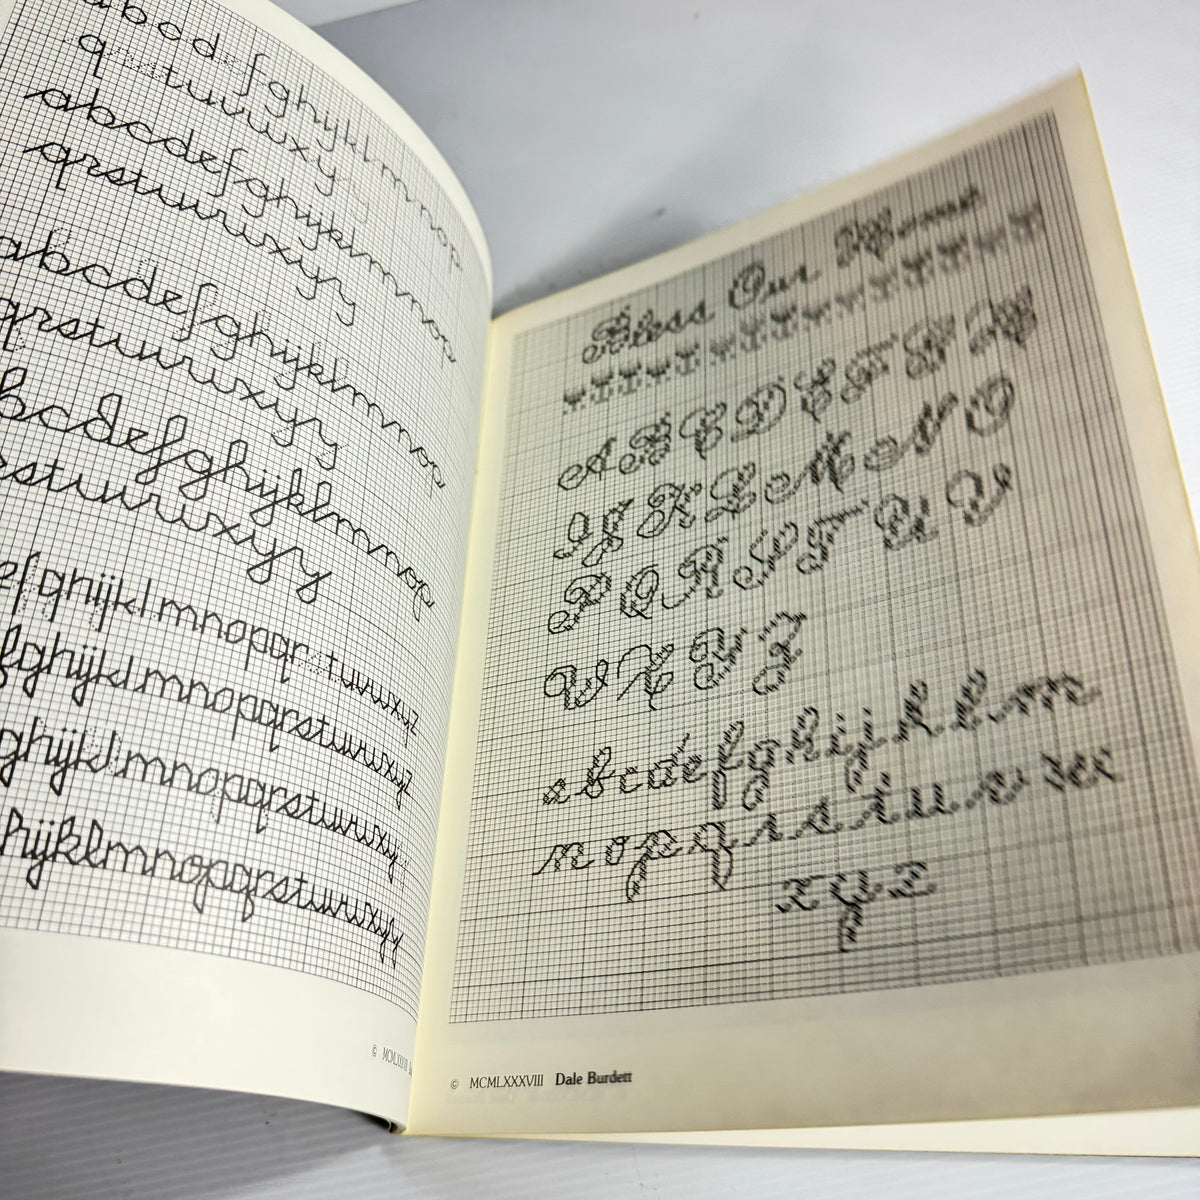 abcdefghijklmnop
qrstuvwxyz
abcdefghijklmnop
qrstuvwxyz
abcdefghijklmnop
qrstuvwxyz
bcdefghijklmnop
rstuvwxyz
efghijklmnopqrstuvwxyz
fghijklmnopqrstuvwxyz
ghijklmnopqrstuvwxy
hijklmnopqrstuvwxyz
© MCMLXXXVIII
Bless Our Home
A B C D E F G H
I J K L M N O
P Q R S T U V
W X Y Z
a b c d e f g h i j k l m
n o p q r s t u v w
x y z
© MCMLXXXVIII Dale Burdett